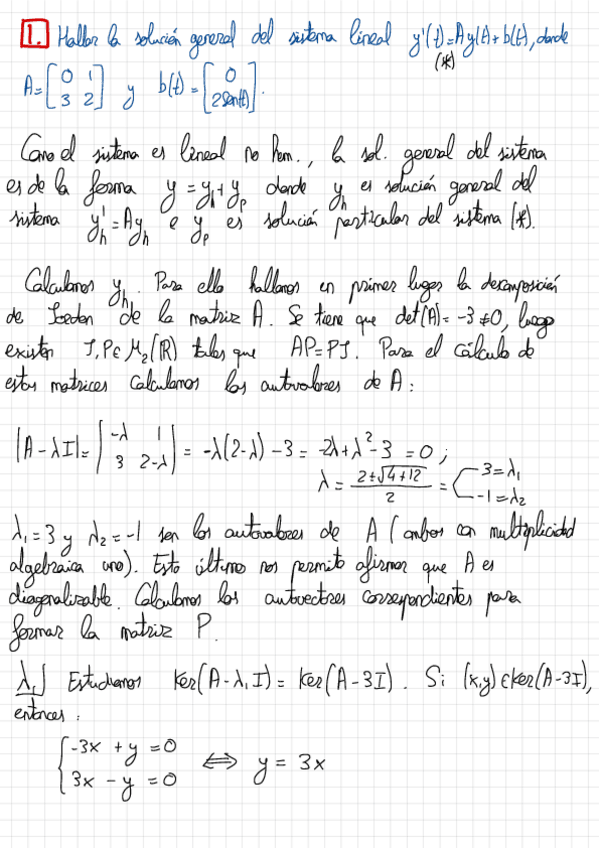 1. Hallar la solución general del sistema lineal y'(t)=Ay(t)+b(t), donde
(*)
A=[0 1; 3 2] y b(t)=[0; 2sen(t)].
Como el sistema es lineal no hom., la sol. general del sistema
es de la forma y = y_h + y_p donde y_h es solución general del
sistema y_h' = Ay_h e y_p es solución particular del sistema (*).
Calculamos y_h. Para ello hallamos en primer lugar la descomposición
de Jordan de la matriz A. Se tiene que det(A) = -3 ≠ 0, luego
existen J, P ∈ M_2(ℝ) tales que AP = PJ. Para el cálculo de
estas matrices calculamos los autovalores de A:
|A - λI| = |-λ 1; 3 2-λ| = -λ(2-λ) - 3 = -2λ + λ² - 3 = 0;
λ = (2 ± √(4+12))/2 = 3 = λ_1
-1 = λ_2
λ_1 = 3 y λ_2 = -1 son los autovalores de A (ambos con multiplicidad
algebraica uno). Esto último nos permite afirmar que A es
diagonalizable. Calculamos los autovectores correspondientes para
formar la matriz P.
λ_1] Estudiamos ker(A - λ_1 I) = ker(A - 3I). Si (x,y) ∈ ker(A - 3I),
entonces:
{-3x + y = 0
3x - y = 0 ⟺ y = 3x